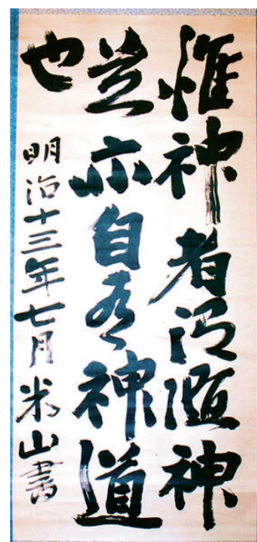 惟神者謂随神
道亦自有神道
也
明治十三年七月米山書